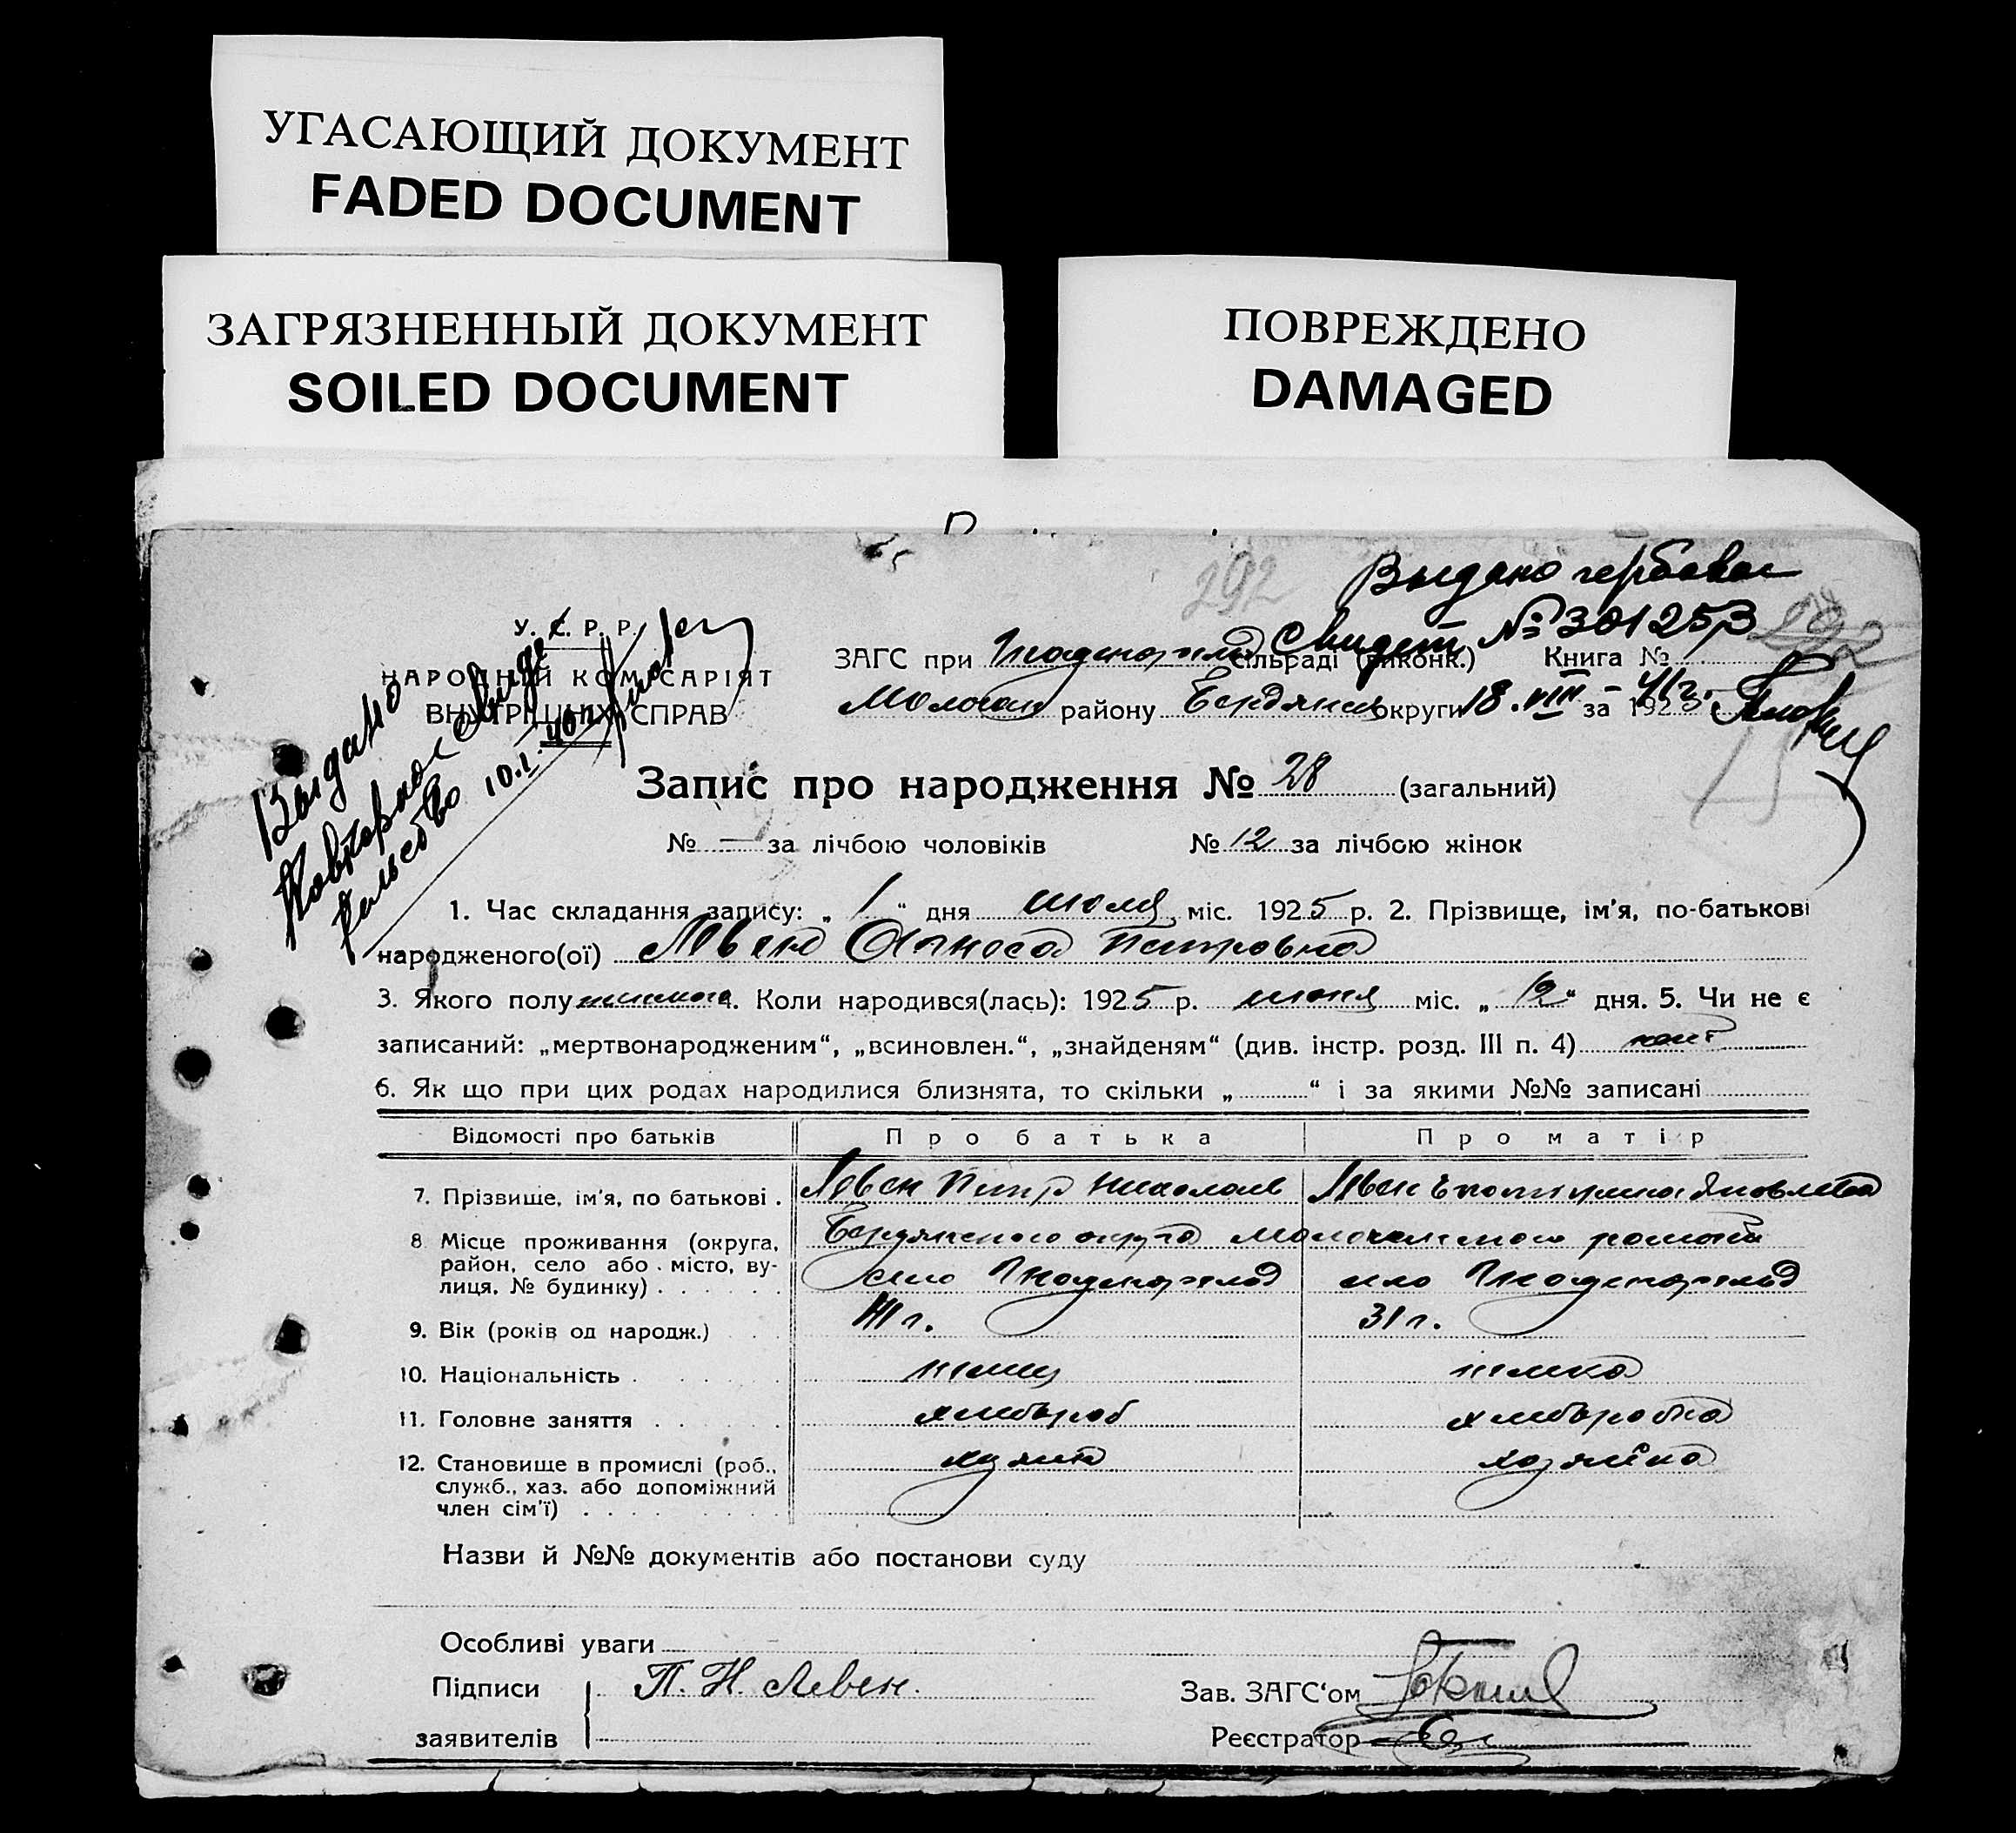 УГАСАЮЩИЙ ДОКУМЕНТ
FADED DOCUMENT
ЗАГРЯЗНЕННЫЙ ДОКУМЕНТ
SOILED DOCUMENT
ПОВРЕЖДЕНО
DAMAGED
292
Выдано гербовое
Свидет № 301253
292
18.VIII-41г.
Выдано
Повторное свиде
тельство 10.I.40г.
У. С. Р. Р.
НАРОДНІЙ КОМІСАРІЯТ
ВНУТРІШНІХ СПРАВ
ЗАГС при сільраді (виконк.) Книга №
Молочан району Бердянск округи за 192
Запис про народження № 28 (загальний)
№ — за лічбою чоловіків № 12 за лічбою жінок
1. Час складання запису: „ 1 “ дня июля міс. 1925 р. 2. Прізвище, ім'я, по-батькові
народженого(ої) Левен Петровна
3. Якого полу 4. Коли народився(лась): 1925 р. июня міс. „ 12 “ дня. 5. Чи не є
записаний: „мертвонародженим“, „всиновлен.“, „знайденям“ (див. інстр. розд. III п. 4)
6. Як що при цих родах народилися близнята, то скільки „ “ і за якими №№ записані
Відомості про батьків Про батька Про матір
7. Прізвище, ім'я, по батькові . Левен Петр Николаев Левен Екатерина Яковлевна
8 Місце проживання (округа, Бердянского округа Молочанского района
район, село або місто, ву- село село
лиця, № будинку) . . . . . .
9. Вік (років од народж.) . . 31 г.
10. Національність . . . . . немец немка
11. Головне заняття . . . . . хлебороб хлеборобка
12. Становище в промислі (роб., хозяин хозяйка
служб., хаз. або допоміжний
член сім'ї) . . . . . . . .
Назви й №№ документів або постанови суду
Особливі уваги
Підписи П. Н. Левен.
заявителів
Зав. ЗАГС‘ом
Реєстратор